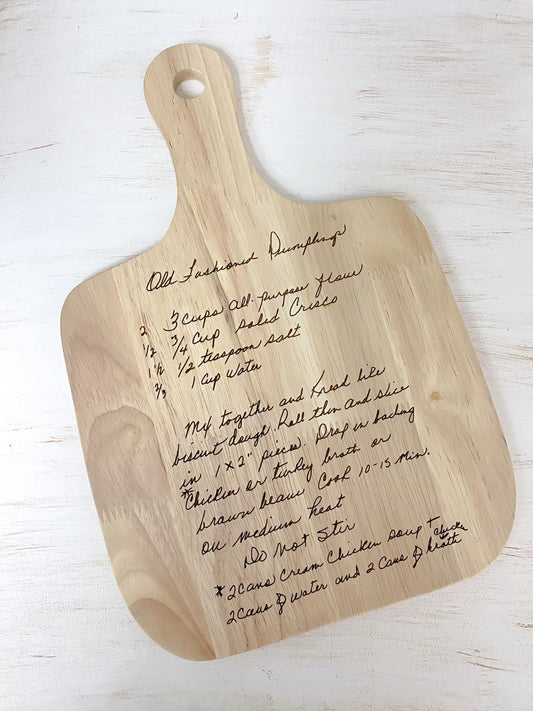 Old Fashioned Dumplings
2 3 cups all-purpose flour
1/2 3/4 cup solid Crisco
1 1/2 1/2 teaspoon salt
2/3 1 cup water
Mix together and Knead like
biscuit dough. Roll thin and slice
in 1 x 2" pieces. Drop in boiling
*Chicken or turkey broth or
brown beans Cook 10-15 Min.
on medium heat
Do Not Stir
* 2 cans cream chicken soup +
2 cans of water and 2 cans of chicken broth